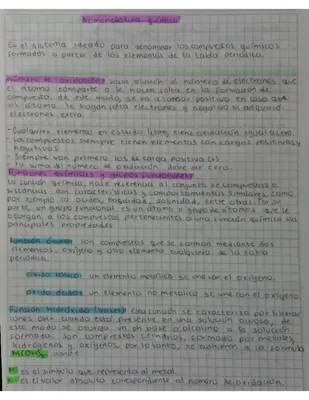 Nomenclatura química
Es el sistema ideado para denominar los compuestos químicos
formados a partir de los elementos de la tabla periódica.
Número de oxidación: hace alusión al número de electrones que
el átomo comparte o le hacen falta en la formación de
compuesto, de este modo, se va a tomar positivo en caso que
el átomo, le hagan falta electrones y negativo si adquirió
electrones extra.
- Cualquier elemento en estado libre, tiene oxidación igual a cero.
- Los compuestos siempre tienen elementos con cargas positivas y
negativas
- Siempre van primero los de carga positiva (+).
- La suma del número de oxidación debe dar cero.
Funciones químicas y grupos funcionales
La función química, hace referencia al conjunto de compuestos o
sustancias con características y comportamientos similares, como
por ejemplo la acidez, basicidad, salinidad, entre otras. Por su
parte, un grupo funcional es un átomo o grupo de átomos que le
otorgan, a los compuestos pertenecientes a una función química sus
principales propiedades
Función óxido: son compuestos que se forman mediante dos
elementos, oxígeno y otro elemento cualquiera de la tabla
periódica.
óxido básico: un elemento metálico se une con el oxígeno.
óxido ácido: un elemento no metálico se une con el oxígeno.
Función Hidróxido (bases): esta función se caracteriza por liberar
iones OH- cuando está presente en una solución acuosa, de
este modo se otorga un ph base o alcalino a la solución
formada. Son compuestos ternarios, formado por metales,
hidrógenos y oxígenos, por lo tanto, se adhieren a la fórmula
donde
M: es el símbolo que representa al metal.
es el valor absoluto correspondiente al número de oxidación.